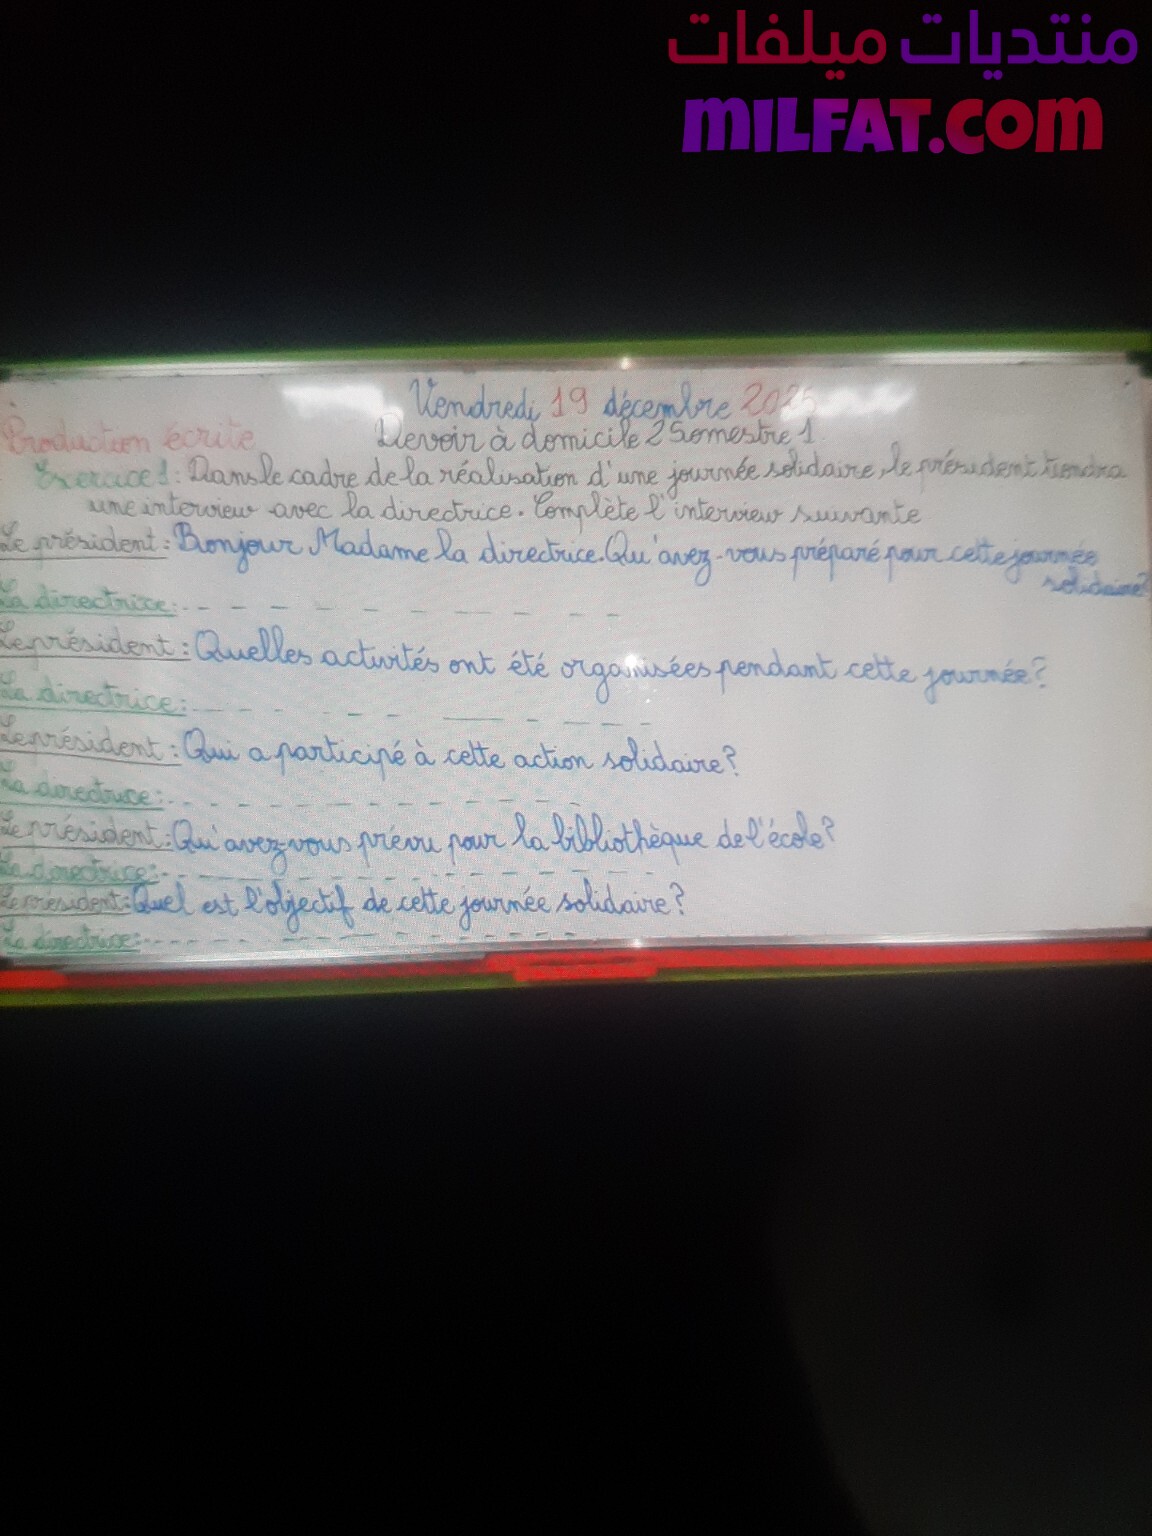 منتديات ميلفات
MILFAT.COM
Vendredi 19 décembre 2025
Production écrite Devoir à domicile 2 Semestre 1
Exercice 1: Dans le cadre de la réalisation d'une journée solidaire, le président tiendra
une interview avec la directrice. Complète l'interview suivante
Le président: Bonjour Madame la directrice. Qu'avez-vous préparé pour cette journée
solidaire?
La directrice:
Le président: Quelles activités ont été organisées pendant cette journée?
La directrice:
Le président: Qui a participé à cette action solidaire?
La directrice:
Le président: Qu'avez-vous prévu pour la bibliothèque de l'école?
La directrice:
Le président: Quel est l'objectif de cette journée solidaire?
La directrice: